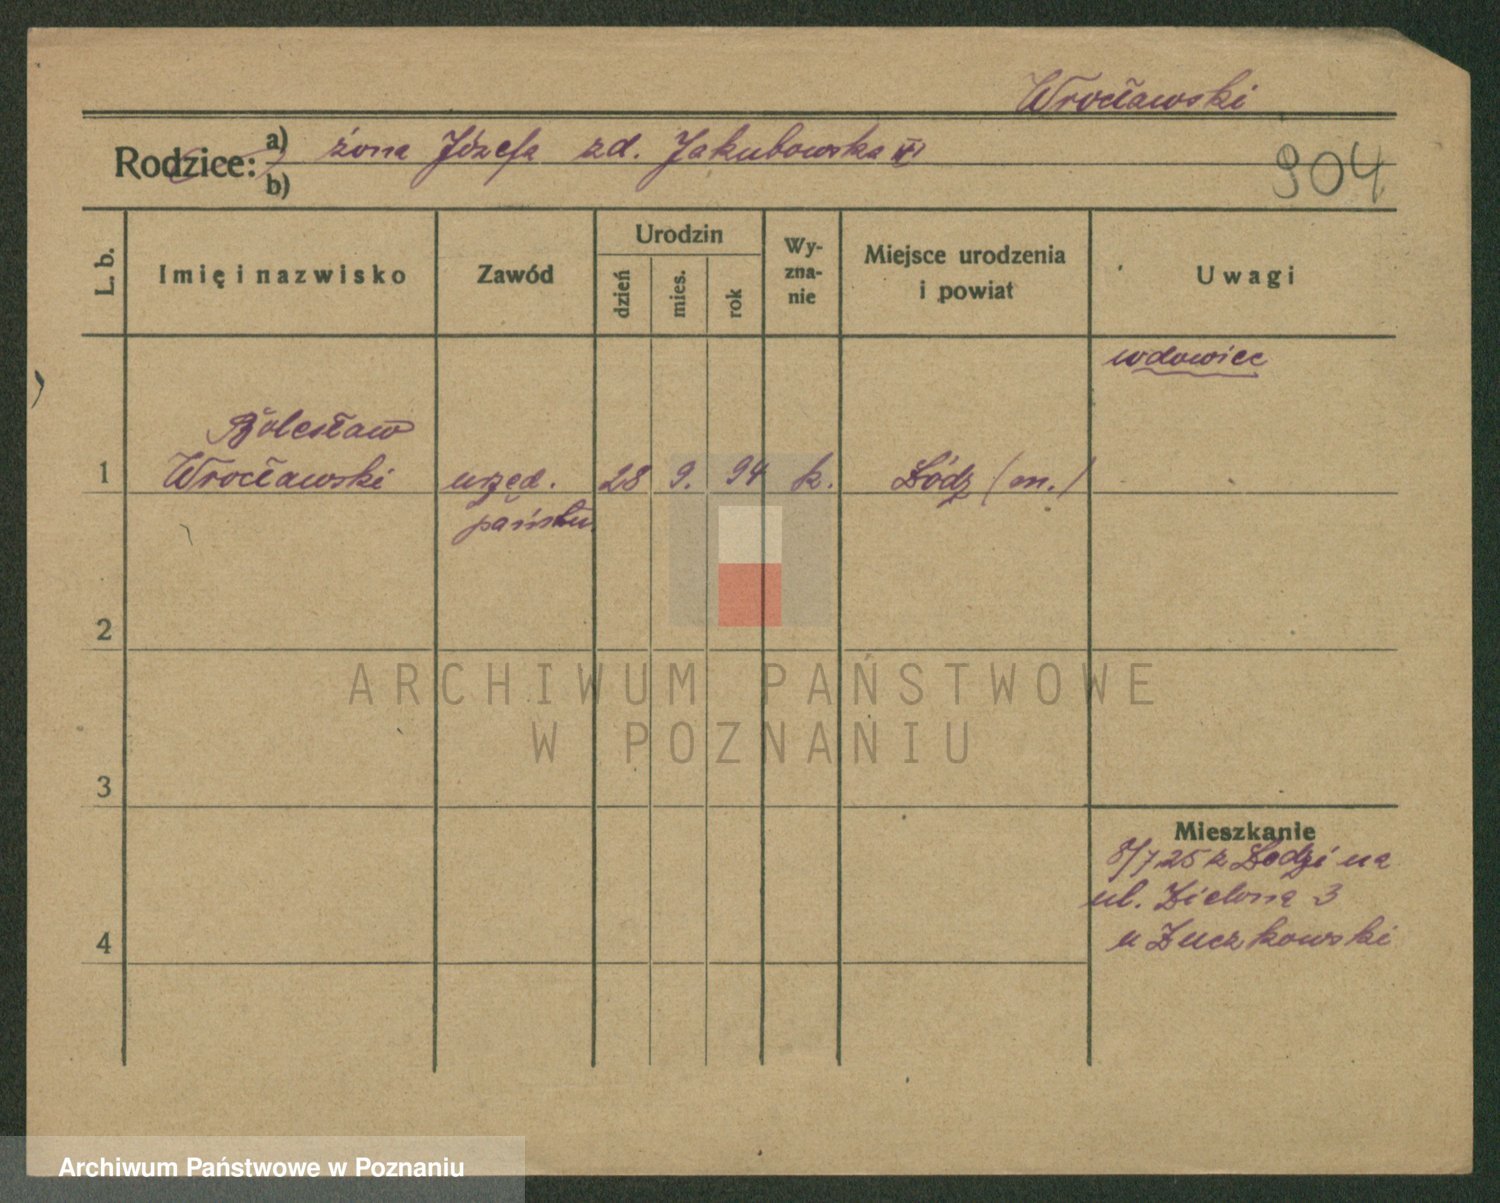 Wrocławski
Rodzice: a) żona Józefa zd. Jakubowska
b)
904
L. b.
Imię i nazwisko
Zawód
Urodzin
dzień
mies.
rok
Wy-
zna-
nie
Miejsce urodzenia
i powiat
Uwagi
wdowiec
Bolesław
1 Wrocławski urzęd. 28 9. 94 k. Łódz (m.)
państw.
2
ARCHIWUM PAŃSTWOWE
W POZNANIU
3
Mieszkanie
8/7 25 z Łodzi na
ul. Zieloną 3
4 u Zuczkowski
Archiwum Państwowe w Poznaniu